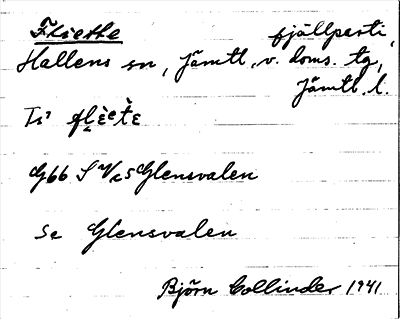 Fliette fjällparti,
Hallens sn, Jämtl. v. doms. tg,
Jämtl. l.
Ti'
G66 S V/c s Glensvalen
se Glensvalen
Björn Collinder 1941